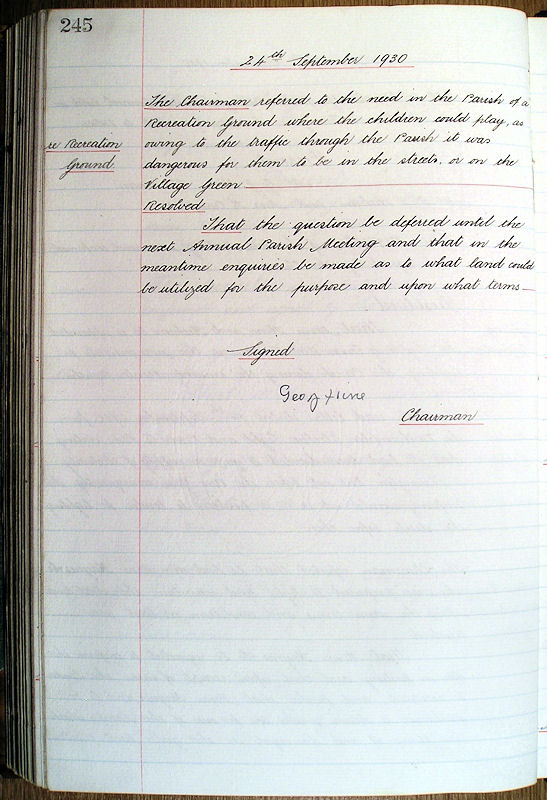 245
24th September 1930
The Chairman referred to the need in the Parish of a
Recreation Ground where the children could play, as
re Recreation
owing to the traffic through the Parish it was
Ground
dangerous for them to be in the streets, or on the
Village Green
Resolved
That the question be deferred until the
next Annual Parish Meeting and that in the
meantime enquiries be made as to what land could
be utilized for the purpose and upon what terms
Signed
Geo Hine
Chairman